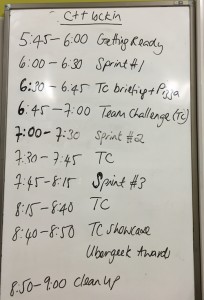 C++ lockin
5:45 - 6:00 Getting Ready
6:00 - 6:30 Sprint #1
6:30 - 6:45 TC briefing + Pizza
6:45 - 7:00 Team Challenge (TC)
7:00 - 7:30 Sprint #2
7:30 - 7:45 TC
7:45 - 8:15 Sprint #3
8:15 - 8:40 TC
8:40 - 8:50 TC Showcase
Ubergeek Award
8:50 - 9:00 Clean up